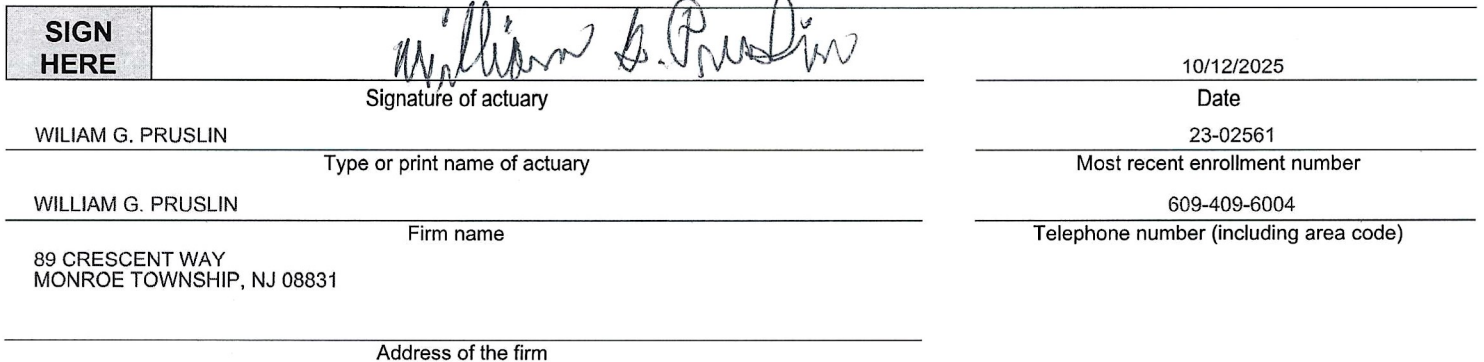 SIGN
HERE
William G. Pruslin
10/12/2025
Signature of actuary
Date
WILIAM G. PRUSLIN
23-02561
Type or print name of actuary
Most recent enrollment number
WILLIAM G. PRUSLIN
609-409-6004
Firm name
Telephone number (including area code)
89 CRESCENT WAY
MONROE TOWNSHIP, NJ 08831
Address of the firm